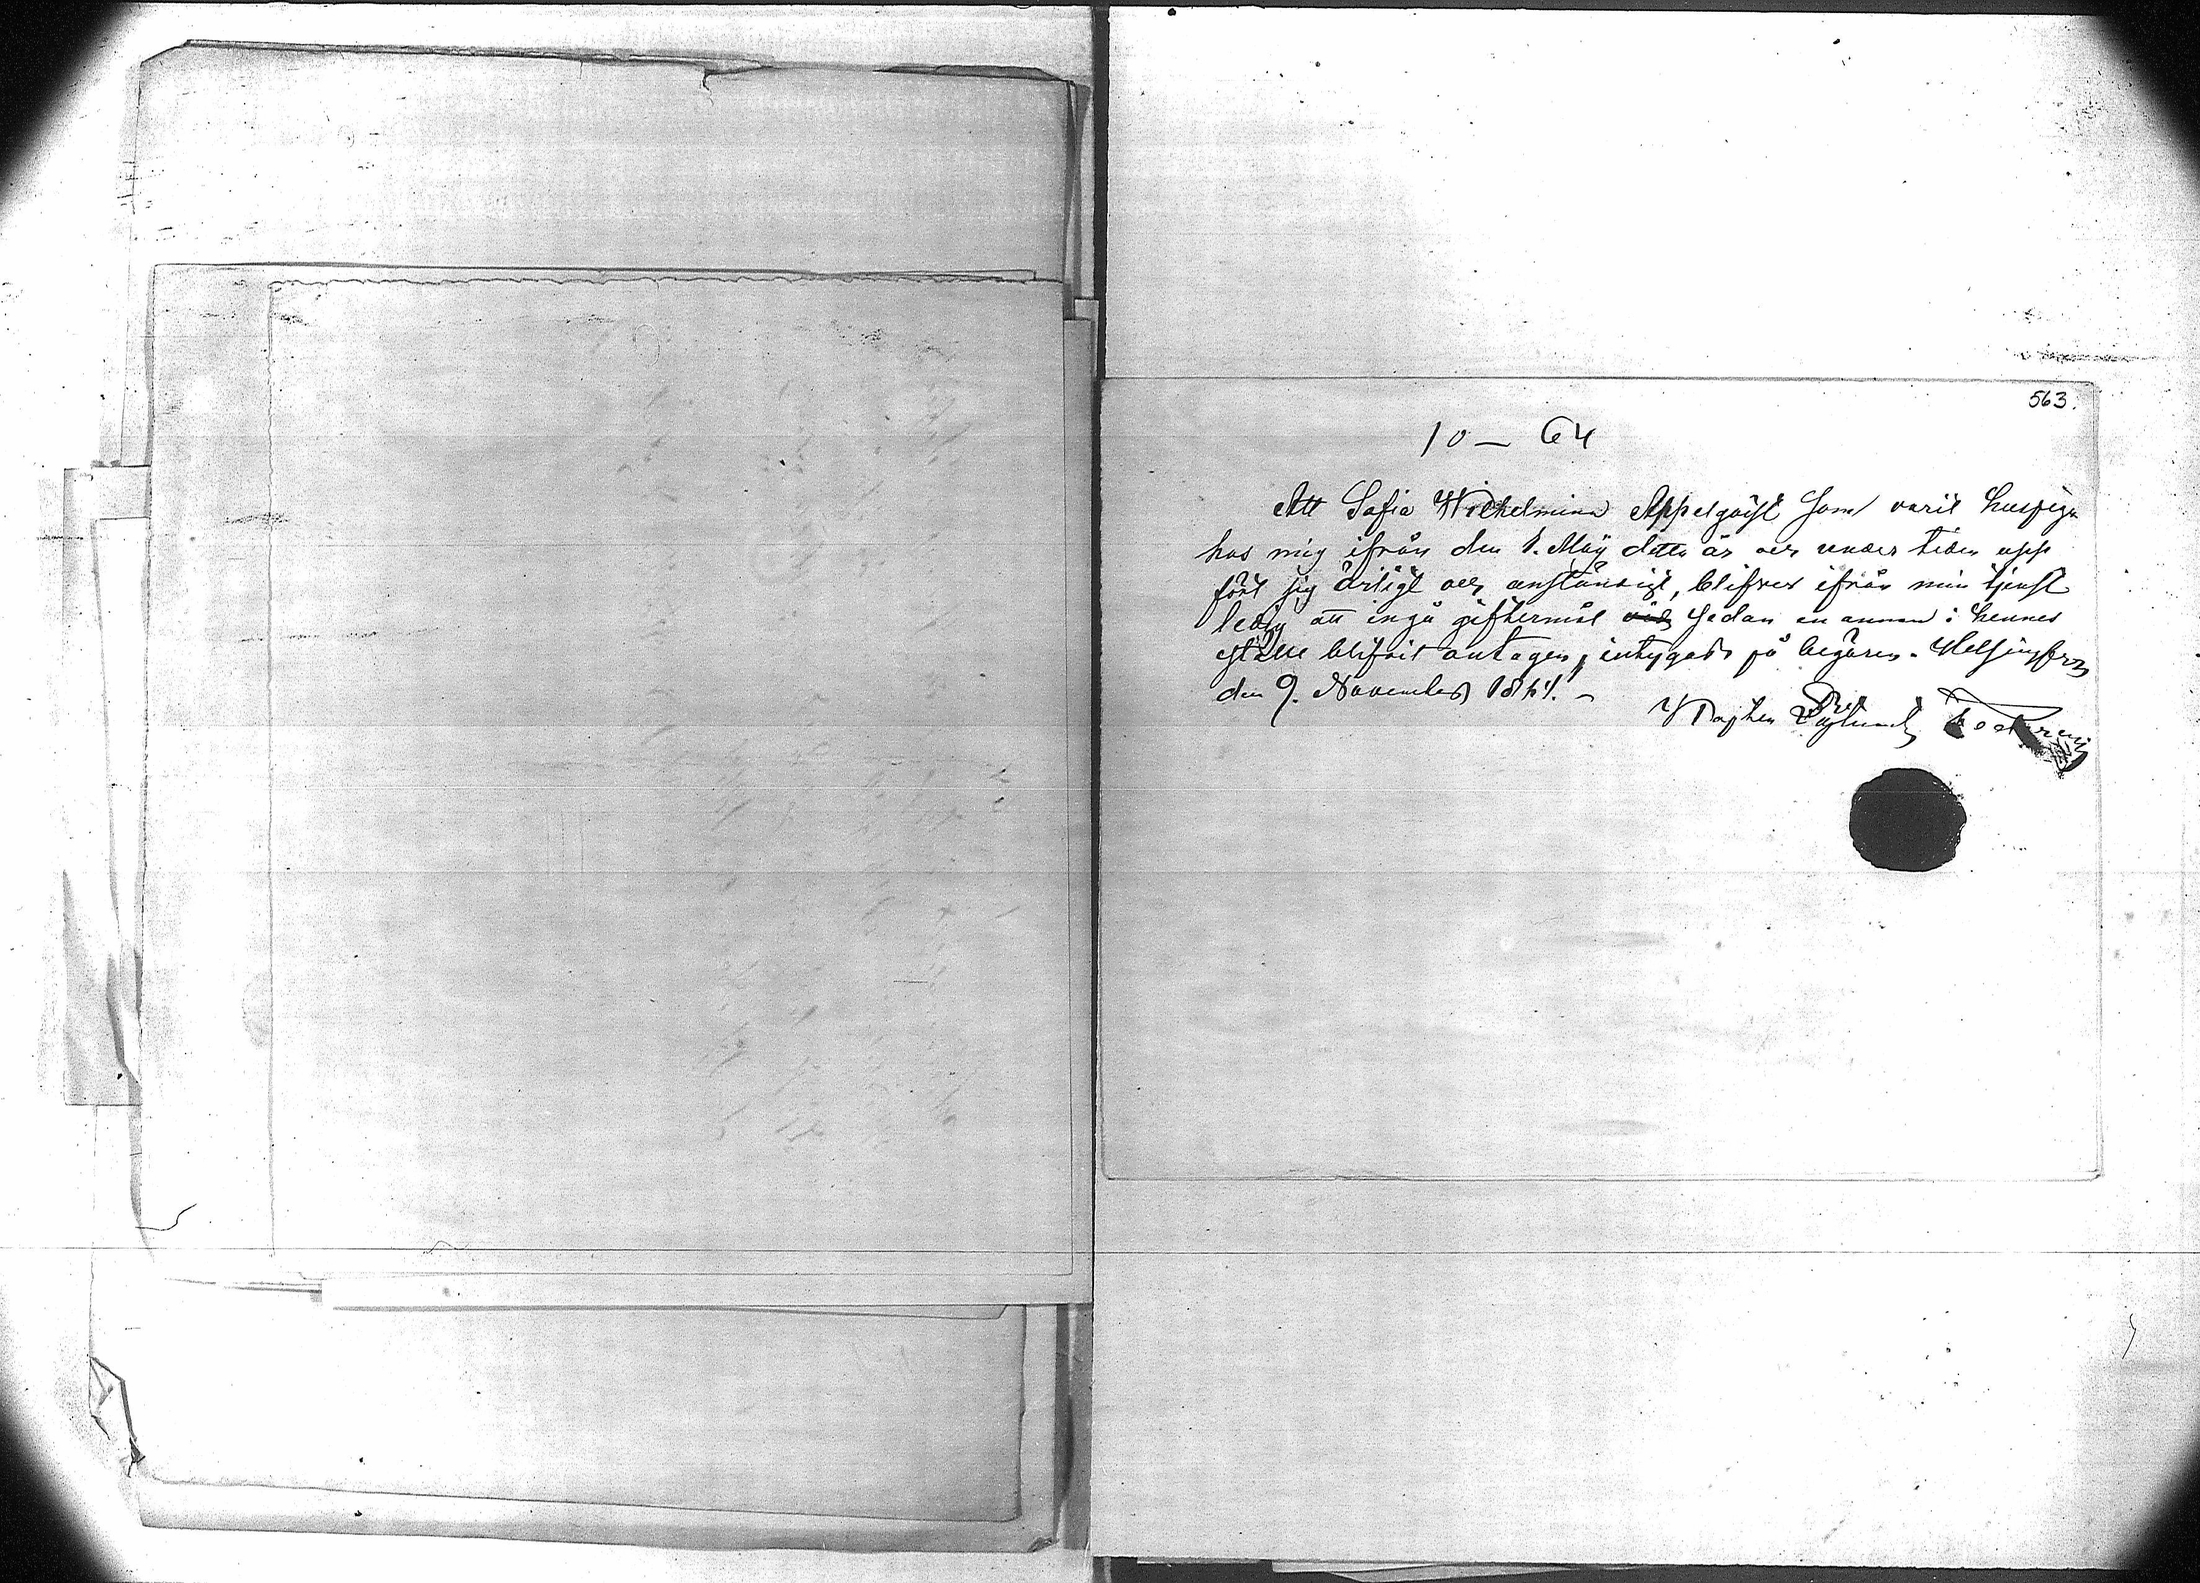 563.
10 — 64
Att Sofia Wilhelmina Appelqvist som varit huspiga
hos mig ifrån den 1. Maÿ detta år och under tiden upp
fört sig ärligt och anständigt, blifver ifrån min tjenst
ledig att ingå giftermål sedan en annan i hennes
ställe blifvit antagen, intygads på begäran. Helsingfors
den 9. November 1864. -